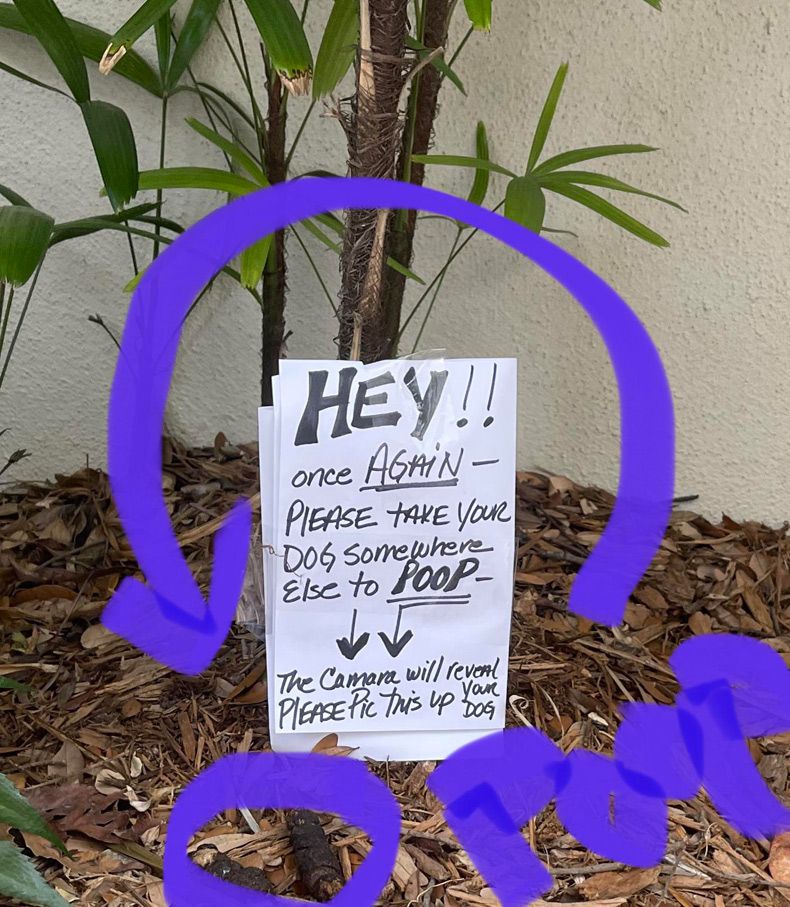 HEY!!
once AGAiN —
PlEASE tAKE YOUR
DOG somewhere
Else to POOP —
The Camara will reveal
PlEASE Pic This up YOUR DOG
POOP